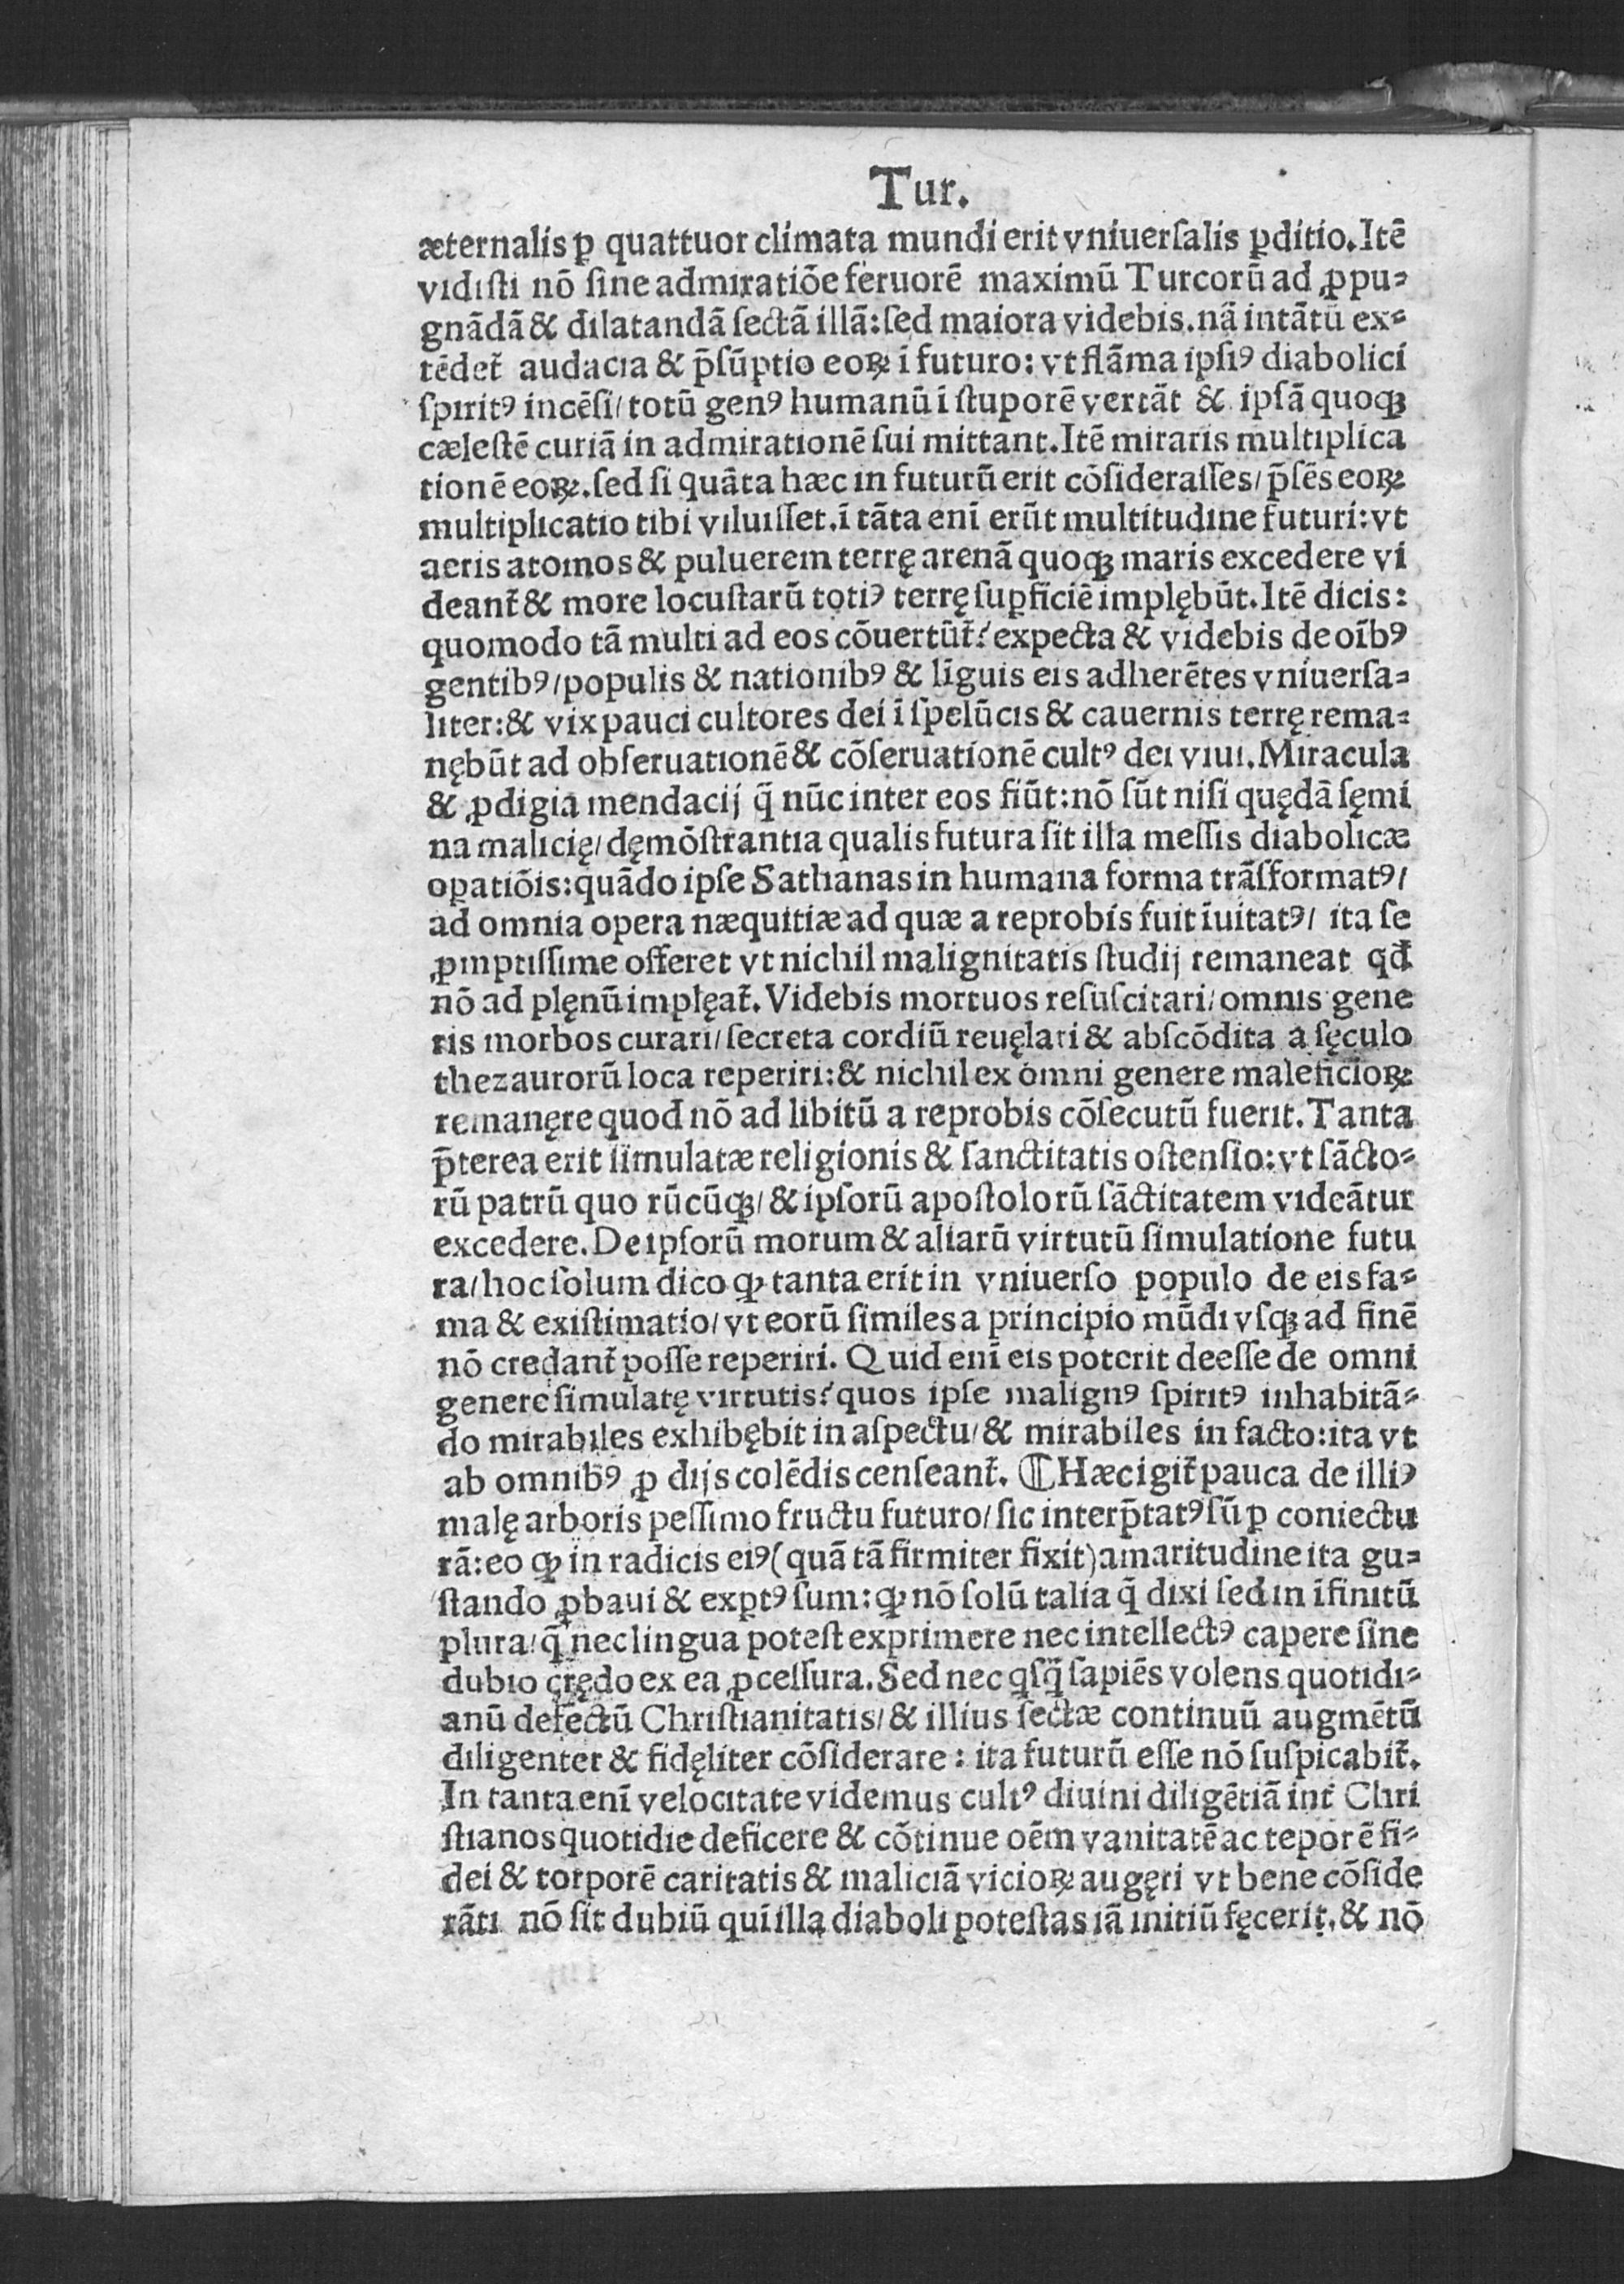 Tur.
æternalis ꝑ quattuor climata mundi erit vniuerſalis ꝑditio. Itē
vidiſti nō ſine admiratiōe feruorē maximū Turcorū ad ꝓpu⸗
gnādā & dilatandā ſectā illā: ſed maiora videbis. nā intātū ex⸗
tēdet᷑ audacia & p̄ſūptio eoꝝ ī futuro: vt flāma ipſiꝰ diabolici
ſpiritꝰ incēſi/ totū genꝰ humanū ī ſtuporē vertāt & ipſā quoqꝫ
cæleſtē curiā in admirationē ſui mittant. Itē miraris multiplica
tionē eoꝝ. ſed ſi quāta hæc in futurū erit cōſideraſſes/ p̄ſēs eoꝝ
multiplicatio tibi viluiſſet. ī tāta enī erūt multitudine futuri: vt
aeris atomos & puluerem terrę arenā quoqꝫ maris excedere vi
deant᷑ & more locuſtarū totiꝰ terrę ſuꝑficiē implębūt. Itē dicis:
quomodo tā multi ad eos cōuertūt᷑? expecta & videbis de oībꝰ
gentibꝰ/ populis & nationibꝰ & līguis eis adherētes vniuerſa⸗
liter: & vix pauci cultores dei ī ſpelūcis & cauernis terrę rema⸗
nębūt ad obſeruationē & cōſeruationē cultꝰ dei viui. Miracula
& ꝓdigia mendacij q̄ nūc inter eos fiūt: nō ſūt niſi quędā ſęmi
na malicię/ dęmōſtrantia qualis futura ſit illa meſſis diabolicæ
oꝑatiōis: quādo ipſe Sathanas in humana forma trāſformatꝰ/
ad omnia opera næquitiæ ad quæ a reprobis fuit īuitatꝰ/ ita ſe
ꝓmptiſſime offeret vt nichil malignitatis ſtudij remaneat qd̄
nō ad plęnū implęat᷑. Videbis mortuos reſuſcitari/ omnis gene
ris morbos curari/ ſecreta cordiū reuęlari & abſcōdita a ſęculo
thezaurorū loca reperiri: & nichil ex omni genere maleficioꝝ
remanęre quod nō ad libitū a reprobis cōſecutū fuerit. Tanta
p̄terea erit ſimulatæ religionis & ſanctitatis oſtenſio: vt ſācto⸗
rū patrū quo rūcūqꝫ/ & ipſorū apoſtolorū ſāctitatem videātur
excedere. De ipſorū morum & aliarū virtutū ſimulatione futu
ra/ hoc ſolum dico ꝙ tanta erit in vniuerſo populo de eis fa⸗
ma & exiſtimatio/ vt eorū ſimiles a principio mūdi vſqꝫ ad finē
nō credant᷑ poſſe reperiri. Quid enī eis poterit deeſſe de omni
genere ſimulatę virtutis? quos ipſe malignꝰ ſpiritꝰ inhabitā⸗
do mirabiles exhibębit in aſpectu/ & mirabiles in facto: ita vt
ab omnibꝰ ꝓ dijs colēdis cenſeant᷑. ¶ Hæc igit᷑ pauca de illiꝰ
malę arboris peſſimo fructu futuro/ ſic interp̄tatꝰ ſū ꝑ coniectu
rā: eo ꝙ in radicis eiꝰ (quā tā firmiter fixit) amaritudine ita gu⸗
ſtando ꝓbaui & exꝑtꝰ ſum: ꝙ nō ſolū talia q̄ dixi ſed in īfinitū
plura/ q̄ nec lingua poteſt exprimere nec intellectꝰ capere ſine
dubio crędo ex ea ꝓceſſura. Sed nec qſq̄ ſapiēs volens quotidi⸗
anū defectū Chriſtianitatis/ & illius ſectæ continuū augmētū
diligenter & fidęliter cōſiderare: ita futurū eſſe nō ſuſpicabit᷑.
In tanta enī velocitate videmus cultꝰ diuini diligētiā int᷑ Chri
ſtianos quotidie deficere & cōtinue oēm vanitatē ac teporē fi⸗
dei & torporē caritatis & maliciā vicioꝝ augęri vt bene cōſide
rāti nō ſit dubiū quī illa diaboli poteſtas iā initiū fęcerit. & nō